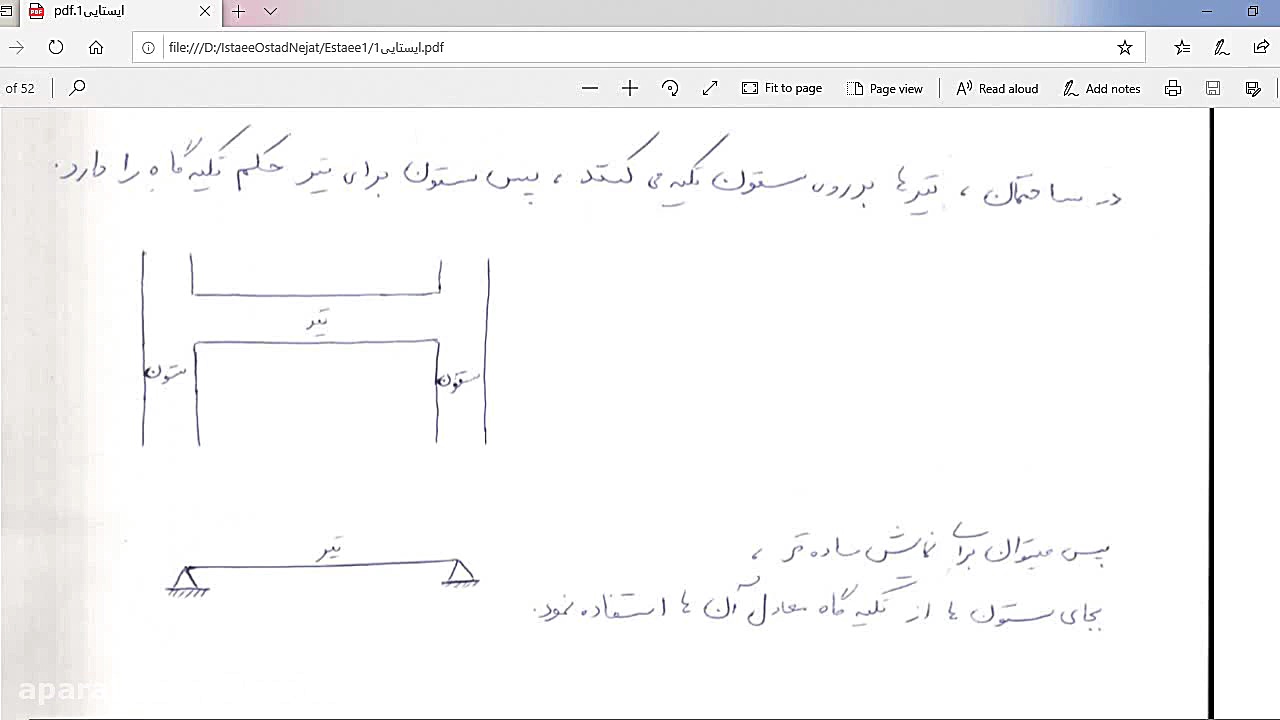 ایستایی1.pdf
file:///D:/IstaeeOstadNejat/Estaee1/ایستایی1.pdf
of 52
Fit to page
Page view
Read aloud
Add notes
در ساختمان ، تیرها بر روی ستون تکیه می کنند ، پس ستون برای تیر حکم تکیه گاه را دارد.
تیر
ستون
ستون
تیر
پس میتوان برای نمایش ساده تر ،
بجای ستون ها از تکیه گاه معادل آن ها استفاده نمود.
apara